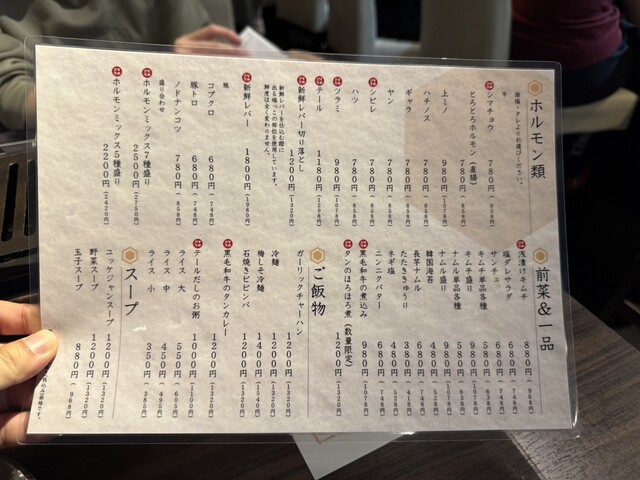 ホルモン類
※塩・タレよりお選びください。
牛
シマチョウ 780円(858円)
とろとろホルモン(直腸) 780円(858円)
上ミノ 980円(1078円)
ハチノス 780円(858円)
ギャラ 780円(858円)
ヤン 780円(858円)
シビレ 780円(858円)
ハツ 780円(858円)
ツラミ 980円(1078円)
テール 1180円(1298円)
新鮮レバー切り落とし 1200円(1320円)
新鮮レバーを仕込む際に
出る端っこの部位を使用しています。
鮮度は全く変わりません。
新鮮レバー 1800円(1980円)
豚
コブクロ 680円(748円)
豚トロ 680円(748円)
ノドナンコツ 780円(858円)
盛り合わせ
ホルモンミックス7種盛り 2500円(2750円)
ホルモンミックス5種盛り 2200円(2420円)
前菜&一品
浅漬けキムチ 880円(968円)
塩ダレサラダ 680円(748円)
サンチュ 680円(748円)
キムチ単品各種 580円(638円)
キムチ盛り 980円(1078円)
ナムル単品各種 580円(638円)
ナムル盛り 980円(1078円)
韓国海苔 480円(528円)
長芋ナムル 680円(748円)
たたききゅうり 380円(418円)
ネギ塩 480円(528円)
ニンニクバター 680円(748円)
黒毛和牛の煮込み 980円(1078円)
タンのほろほろ煮(数量限定) 1200円(1320円)
ご飯物
ガーリックチャーハン 1200円(1320円)
冷麺 1200円(1320円)
梅しそ冷麺 1400円(1540円)
石焼きビビンバ 1200円(1320円)
黒毛和牛のタンカレー 1200円(1320円)
テールだしのお粥 1000円(1100円)
ライス 大 550円(605円)
ライス 中 450円(495円)
ライス 小 350円(385円)
スープ
ユッケジャンスープ 1200円(1320円)
野菜スープ 1200円(1320円)
玉子スープ 880円(968円)